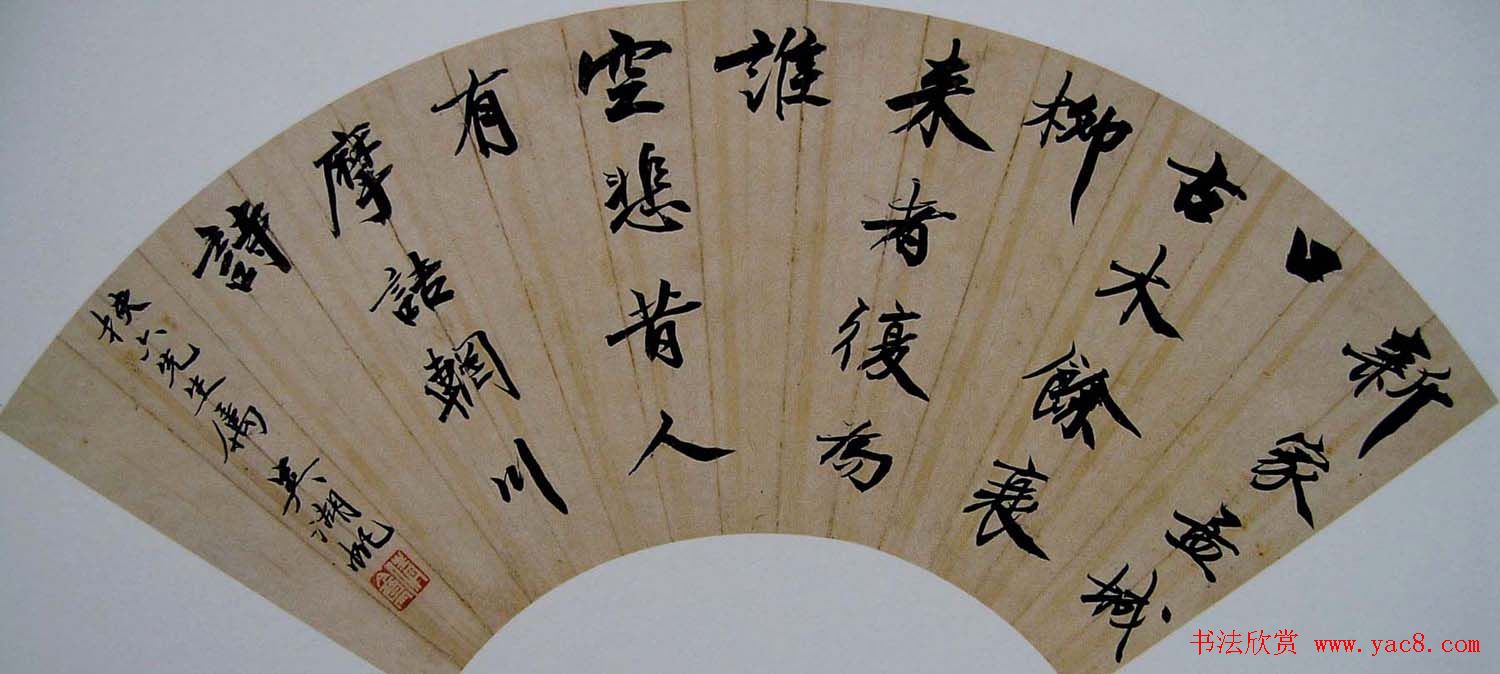 新家孟城
口
古木餘衰
柳
来者復為
誰
空悲昔人
有
摩詰輞川
詩
六先生属 吴湖帆
书法欣赏 www.yac8.com